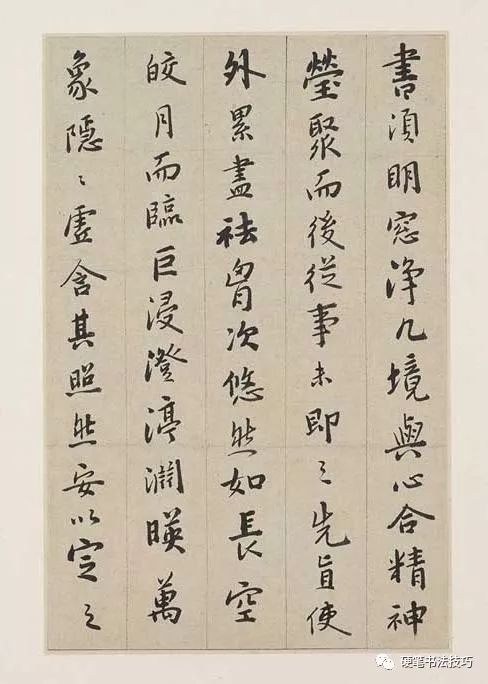 書須明窓净几境與心合精神
瑩聚而後從事未即之先旨使
外累盡祛胷次悠然如長空
皎月而臨巨浸澄渟濶暎萬
象隱〻虛含其照然安以定之
硬笔书法技巧